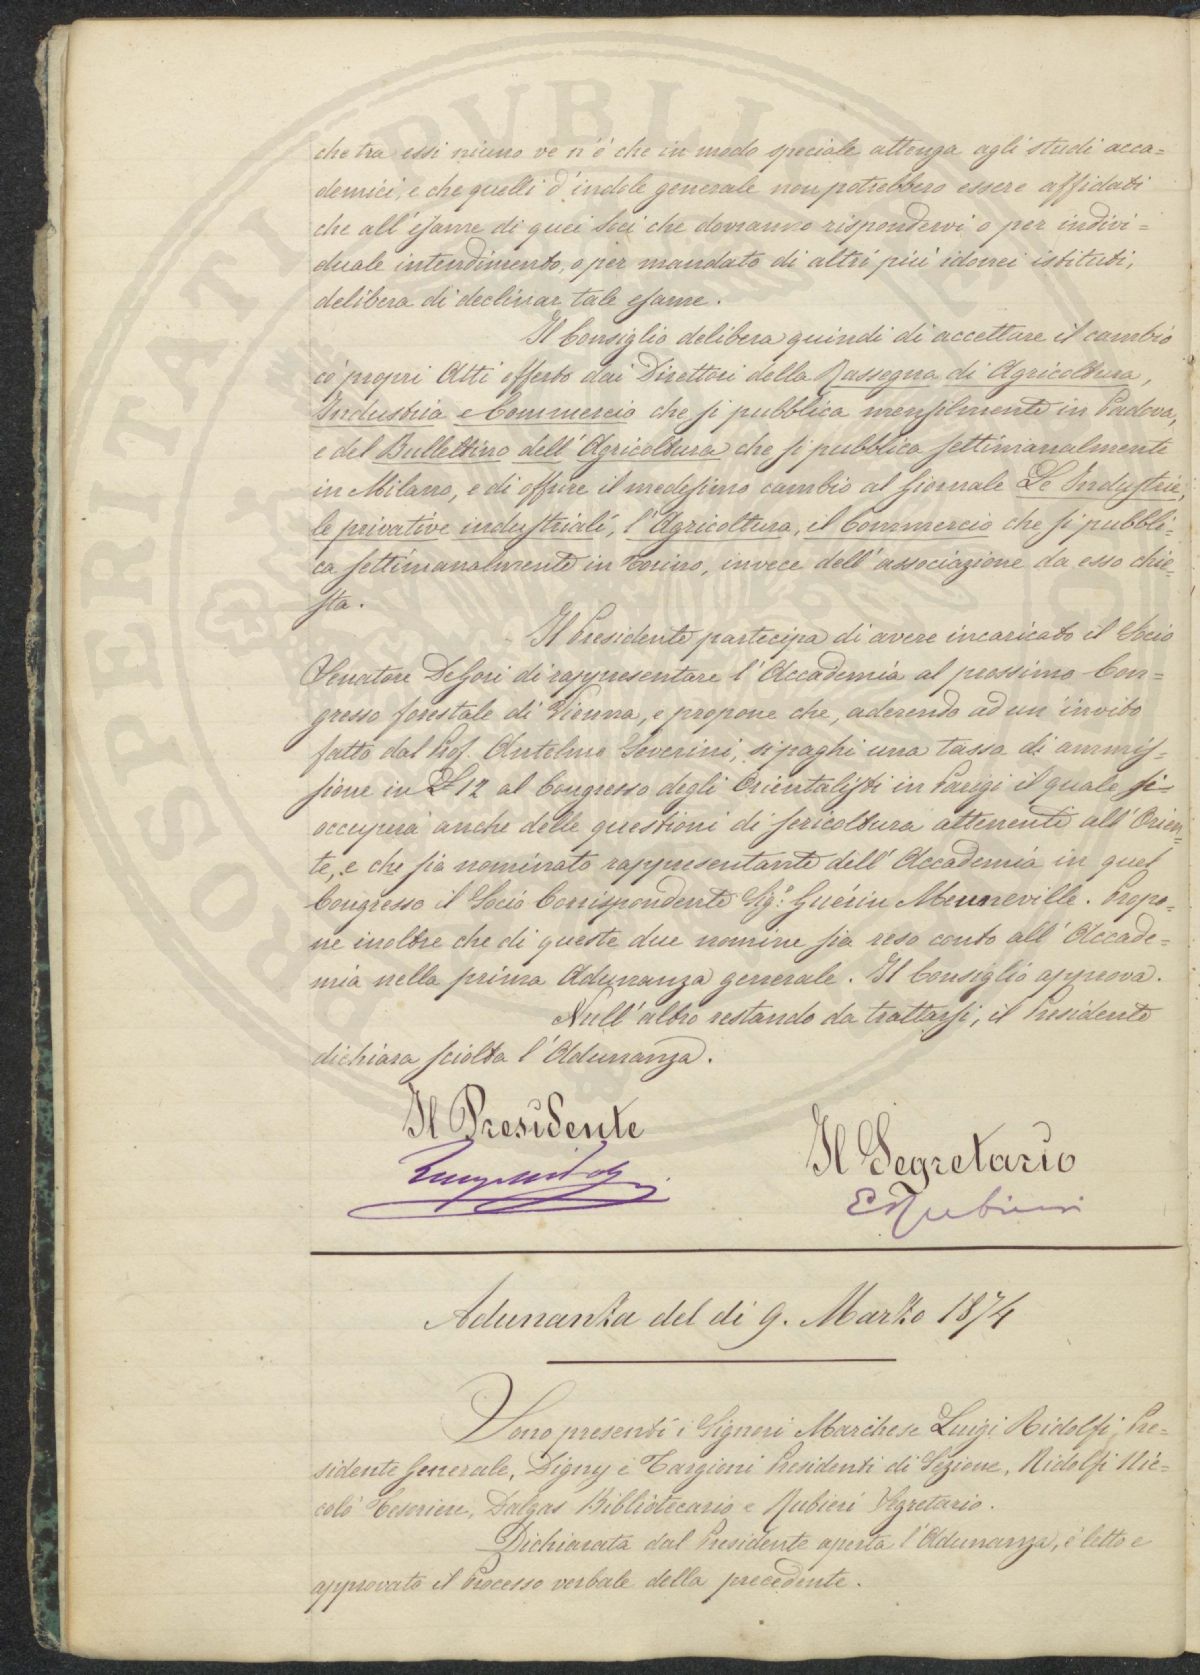 che tra essi niuno ve n'è che in modo speciale attenga agli studi acca=
demici, e che quelli d'indole generale non potrebbero essere affidati
che all'esame di quei Soci che dovranno rispondervi o per indivi=
duale intendimento, o per mandato di altri più idonei istituti,
delibera di declinar tale esame.
Il Consiglio delibera quindi di accettare il cambio
co' propri Atti offerto dai Direttori della Rassegna di Agricoltura,
Industria e Commercio che si pubblica mensilmente in Padova,
e del Bullettino dell'Agricoltura che si pubblica settimanalmente
in Milano, e di offrire il medesimo cambio al Giornale Le Industrie,
le privative industriali, l'Agricoltura, il Commercio che si pubbli=
ca settimanalmente in Torino, invece dell'associazione da esso chie=
sta.
Il Presidente partecipa di avere incaricato il Socio
Senatore DeGori di rappresentare l'Accademia al prossimo Con=
gresso forestale di Vienna, e propone che, aderendo ad un'invito
fatto dal Prof. Antelmo Severini, si paghi una tassa di ammis=
sione in £ 12 al Congresso degli Orientalisti in Parigi il quale si
occuperà anche delle questioni di sericoltura attenente all'Orien=
te, e che sia nominato rappresentante dell'Accademia in quel
Congresso il Socio Corrispondente Sig.r Guérin Menneville. Propo=
ne inoltre che di queste due nomine sia reso conto all'Accade=
mia nella prima Adunanza generale. Il Consiglio approva.
Null'altro restando da trattarsi, il Presidente
dichiara sciolta l'Adunanza.
Il Presidente
Il Segretario
E Rubieri
Adunanza del dì 9. Marzo 1874
Sono presenti i Signori Marchese Luigi Ridolfi, Pre=
sidente Generale, Digny e Targioni Presidenti di Sezione, Ridolfi Nic=
colò Tesoriere, Dalgas Bibliotecario e Rubieri Segretario.
Dichiarata dal Presidente aperta l'Adunanza, è letto e
approvato il Processo verbale della precedente.